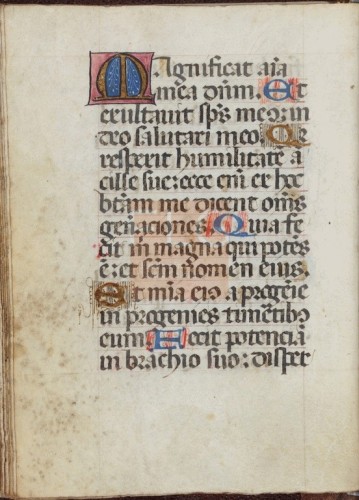 Magnificat aĩa
mea dnm̄. Et
exultauit sp̄s meus in
deo salutari meo. Qe
respexit humilitatē a
cille sue: ecce em̄ ex hoc
btām me dicent om̄s
gen̄aciones. Quia fe
cit m̄ magna qui potēs
ē: et sc̄m nomen eius.
Et mīa eiꝰ a progēie
in progenies timētibꝰ
eum. Fecit potenciā
in brachio suo: disper